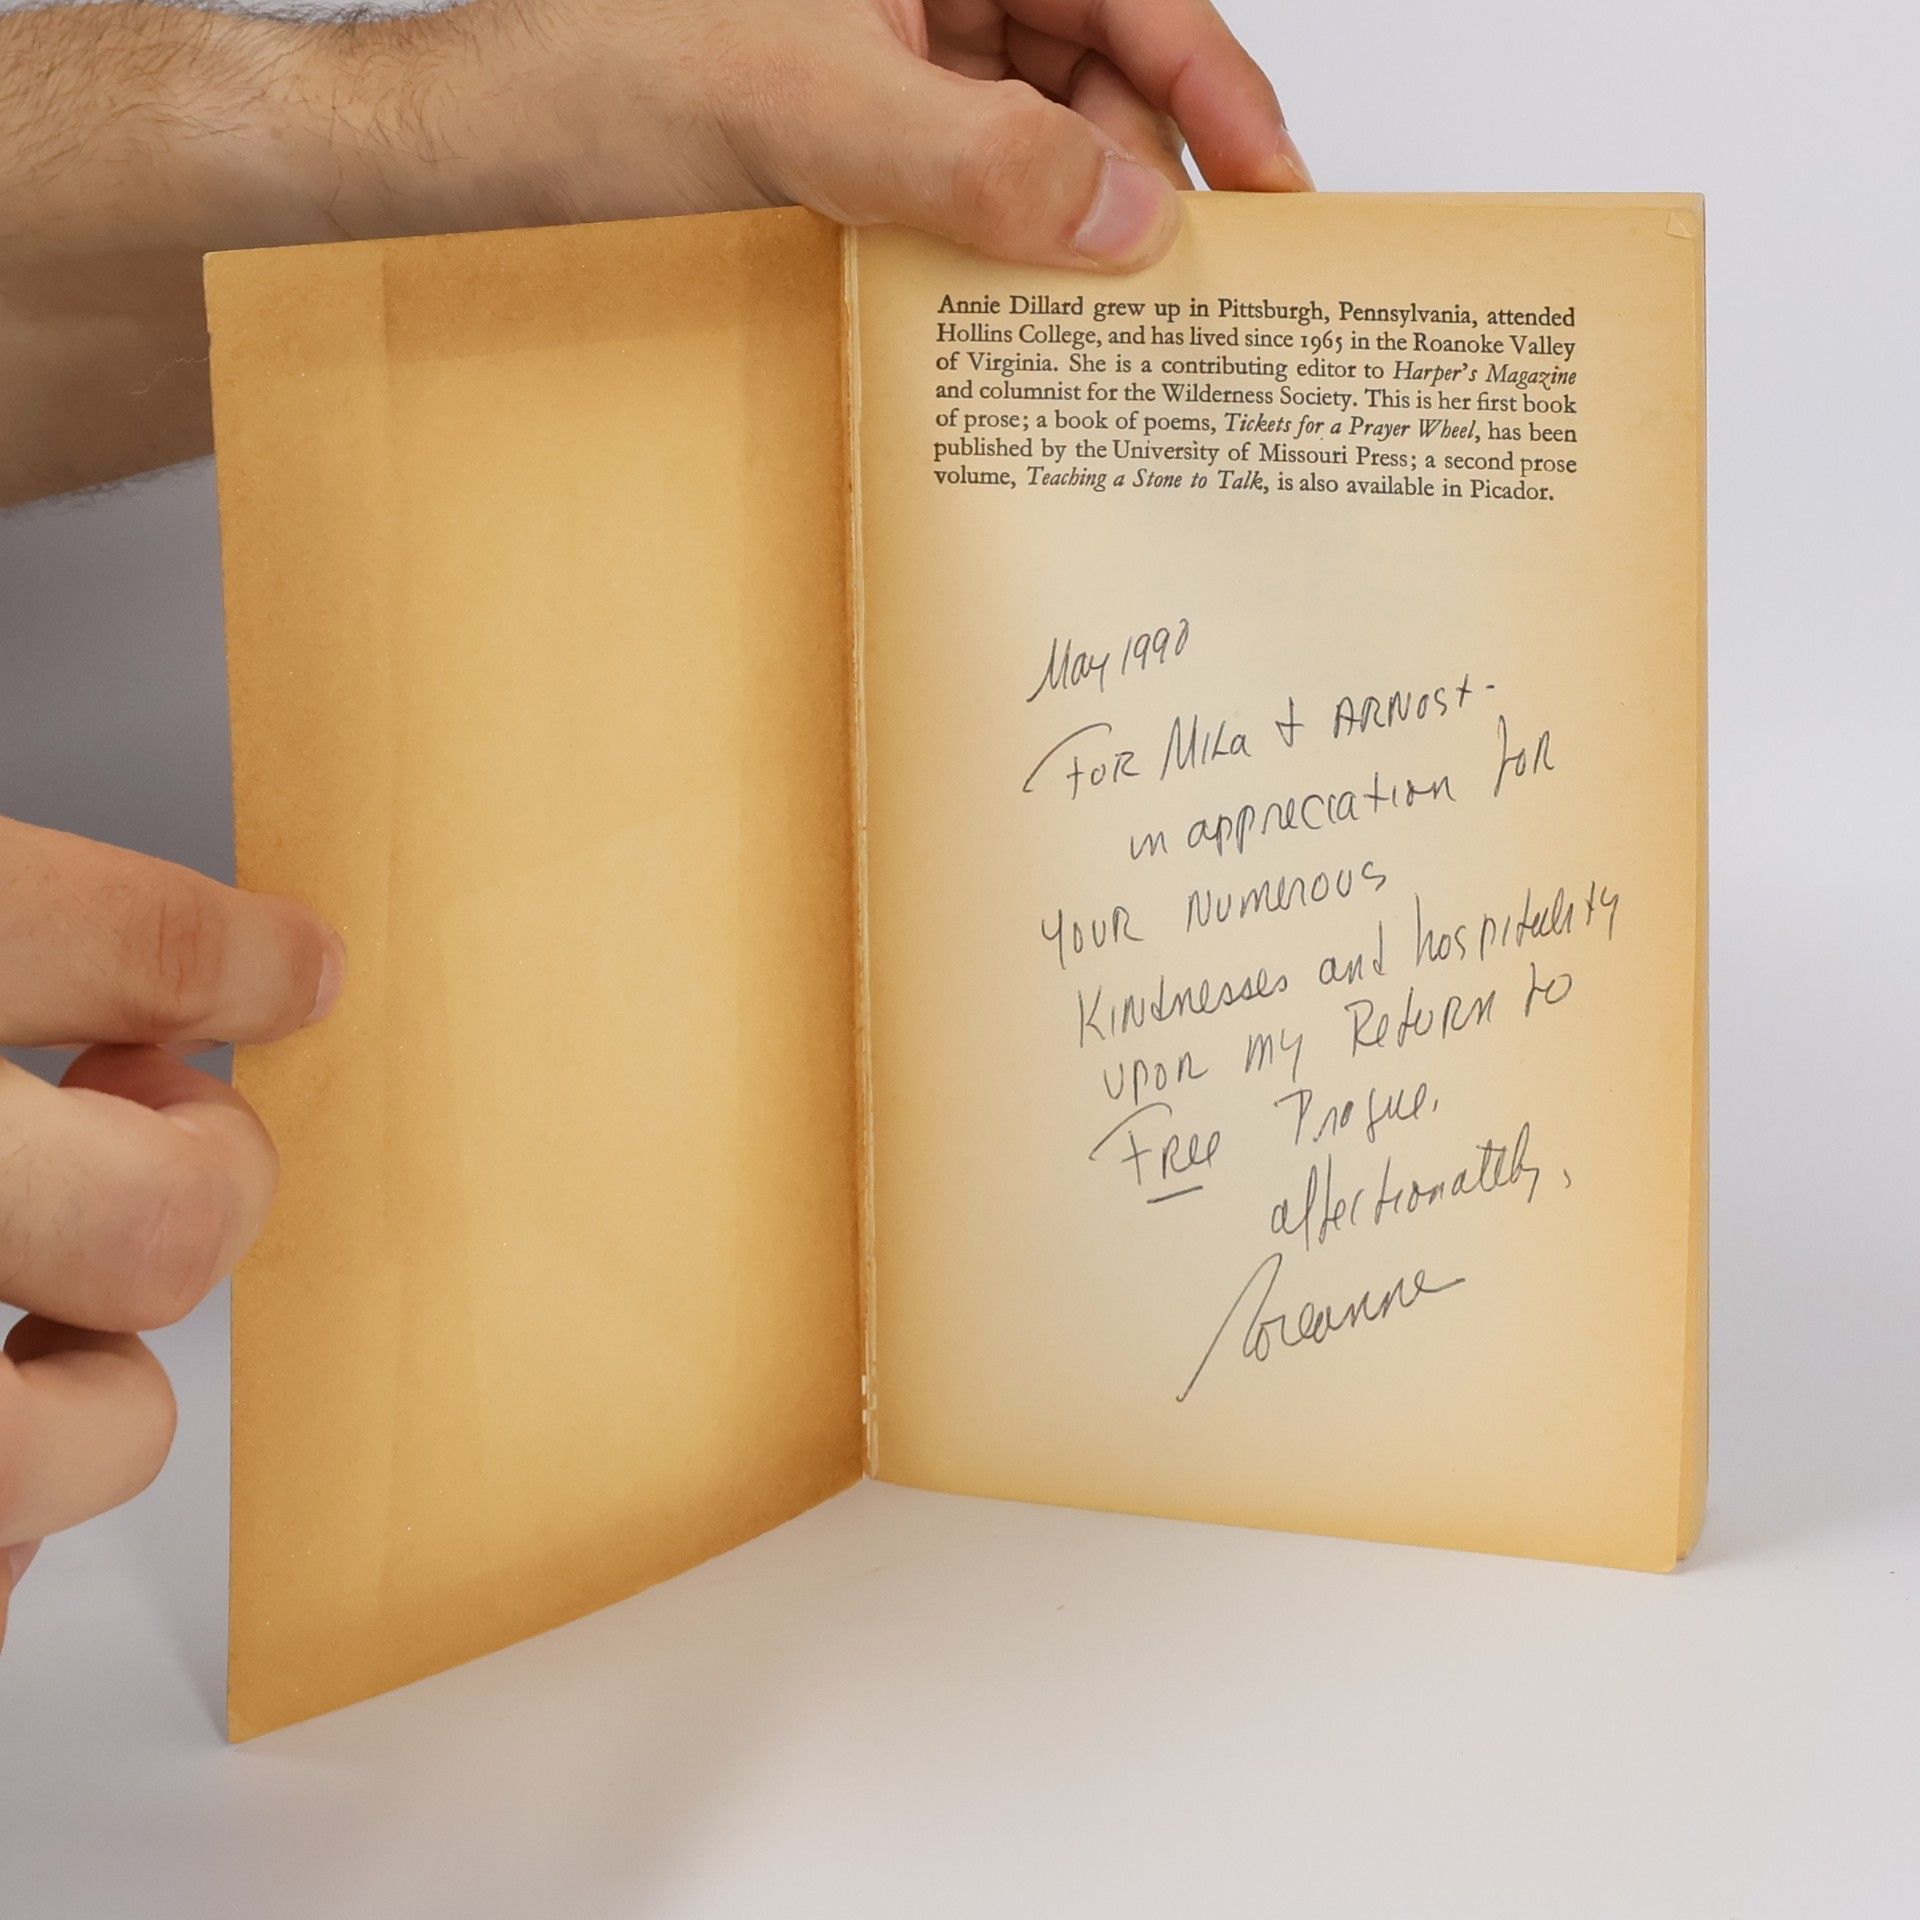 Annie Dillard grew up in Pittsburgh, Pennsylvania, attended
Hollins College, and has lived since 1965 in the Roanoke Valley
of Virginia. She is a contributing editor to Harper's Magazine
and columnist for the Wilderness Society. This is her first book
of prose; a book of poems, Tickets for a Prayer Wheel, has been
published by the University of Missouri Press; a second prose
volume, Teaching a Stone to Talk, is also available in Picador.
May 1990
FOR Mila & ARNOST-
in appreciation for
your numerous
Kindnesses and hospitality
upon my Return to
Free Prague.
affectionately,